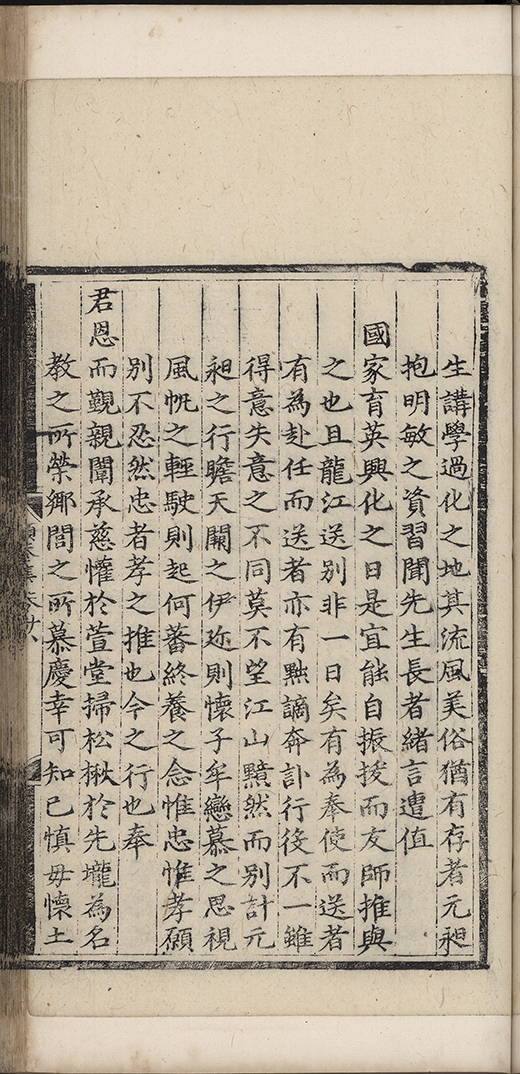 生講學過化之地其流風美俗猶有存者元昶
抱明敏之資習聞先生長者緒言遭值
國家育英興化之日是宜能自振拔而友師推與
之也且龍江送别非一日矣有為奉使而送者
有為赴任而送者亦有黜謫奔訃行役不一雖
得意失意之不同莫不望江山黯然而别計元
昶之行瞻天闕之伊邇則懷子牟戀慕之思視
風帆之輕駛則起何蕃終養之念惟忠惟孝顧
别不忍然忠者孝之推也今之行也奉
君恩而覲親闈承慈懽於萱堂掃松楸於先壠為名
教之所榮鄉閭之所慕慶幸可知已慎毋懷土